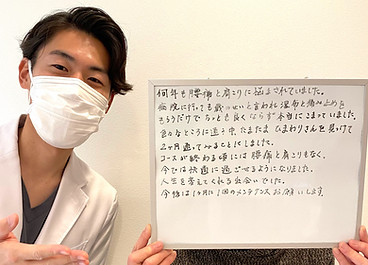 何年も腰痛と肩こりに悩まされていました。
病院に行っても歳のせいと言われ湿布と痛み止めを
もらうだけでちっとも良くならず本当にこまっていました。
色々なところに通う中たまたまひまわりさんを見つけて
2ヶ月通ってみることにしました。
コースが終わる頃には腰痛も肩こりもなく、
今では快適に過ごせるようになりました。
人生を変えてくれる出会いでした。
今後は1ヶ月に1回のメンテナンスお願いします。